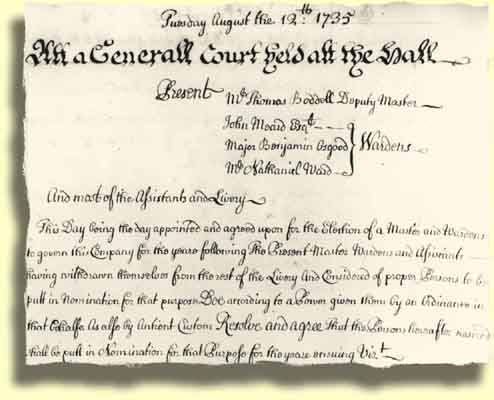 Tuesday August the 12th: 1735
Att a Generall Court held att the Hall
Present Mr. Thomas Boddell Deputy Master
John Moard Esqr.
Major Benjamin Osgood } Wardens
Mr. Nathaniel Ward
And most of the Assistants and Livery
This Day being the day appointed and agreed upon for the Election of a Master and Wardens
to govern this Company for the yeare following The Present Master Wardens and Assistants
having withdrawn themselves from the rest of the Livery And Considered of proper Persons to be
putt in Nomination for that purpose Doe according to a Power given them by an Ordinance in
that Behalfe As also by Antient Custom Resolve and agree That the Persons hereafter named
shall be putt in Nomination for that Purpose for the yeare ensuing Vizt.